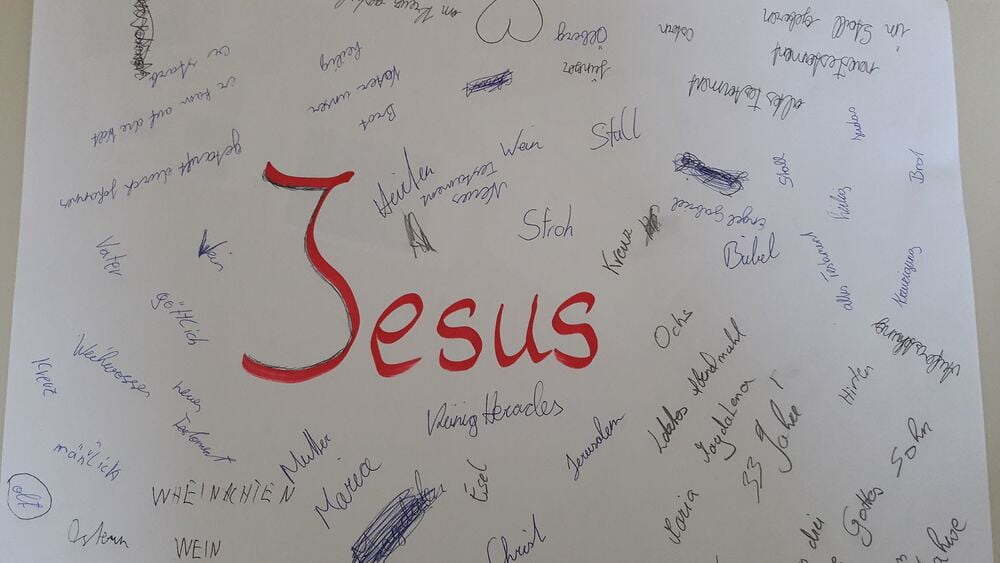 in Stall geboren
neue Testement
altes Testement
Ostern
Ölberg
jünger
heilig
Vater unser
Brot
er starb
er kam auf die Welt
getauft durch Johannes
Wein
Stall
Heiden
Neues
Testement
Stroh
Kreuz
Engel Gabriel
Bibel
Stall
Brot
altes Testament
Kreuzigung
Vater
Wein
göttlich
Jesus
Ochs
Abendmahl
Hirten
Auferstehung
Kreuz
Weihwasser
neues
Testament
König Herodes
33 Jahre
Sohn
Gottes
männlich
alt
WHEINACHTEN
Mutter
Maria
Esel
Jerusalem
Maria
Ostern
WEIN
Christ
drei